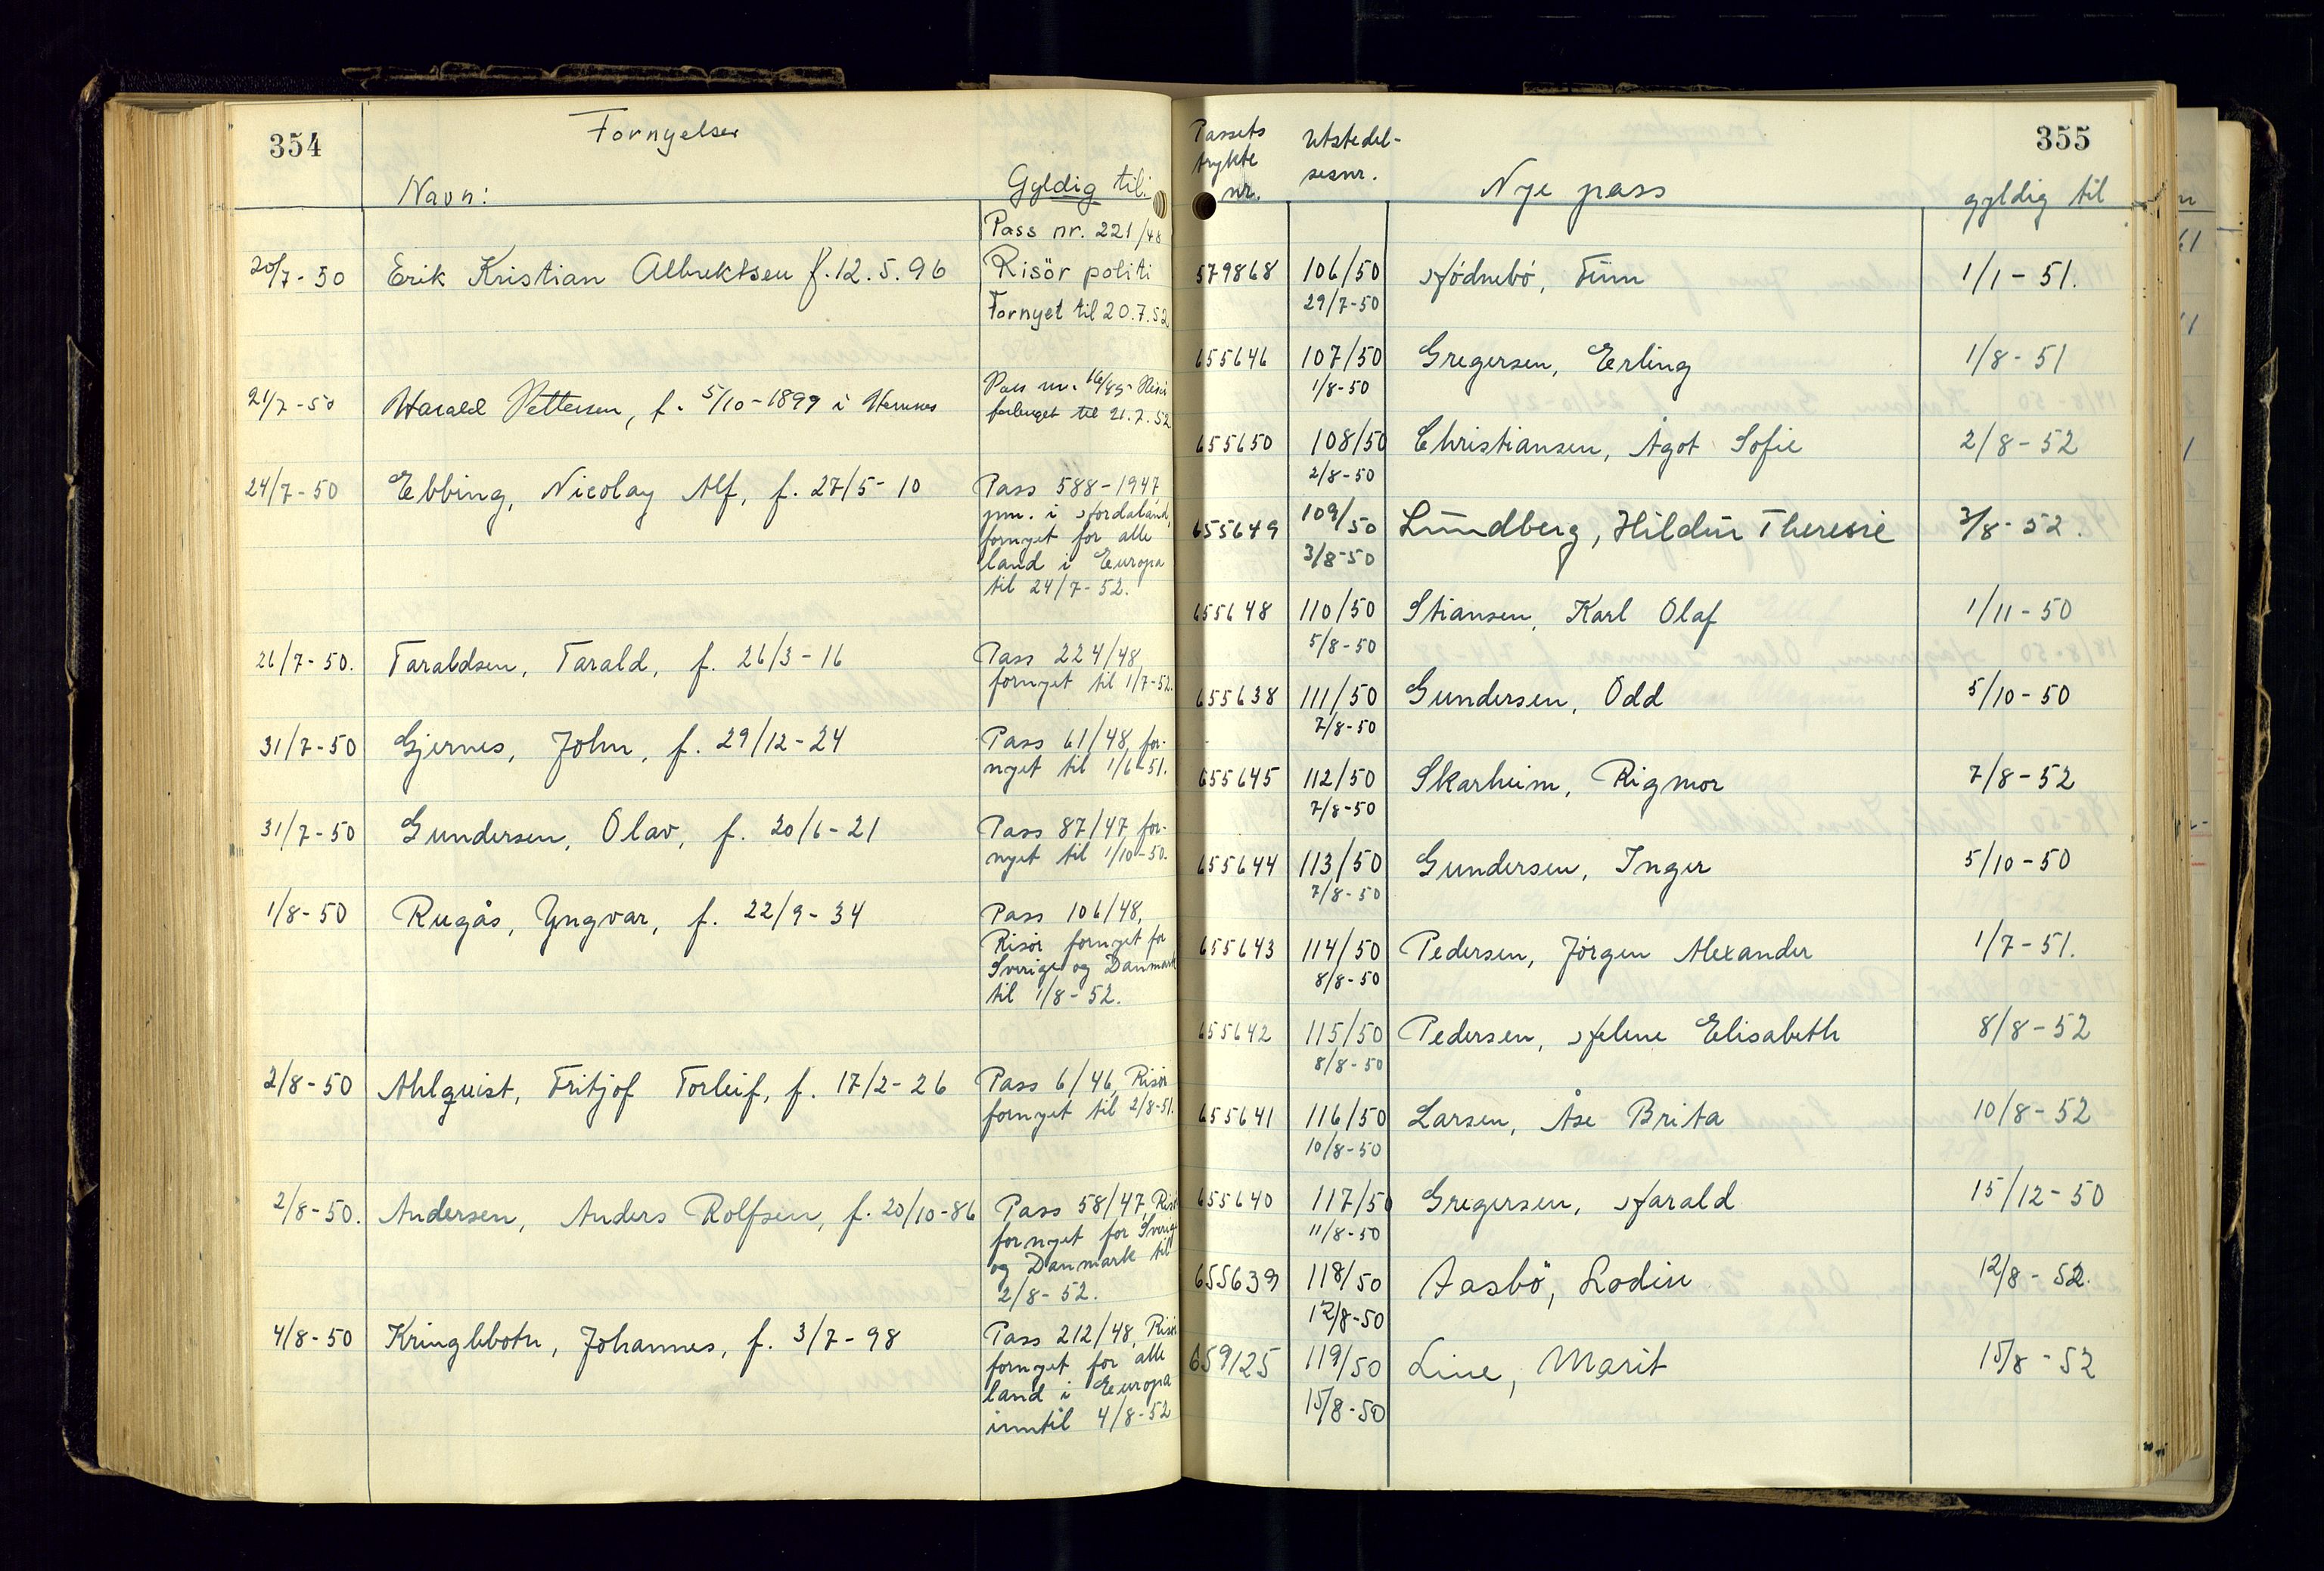 354
Fornyelser
Navn:
Gyldig til:
Pass nr. 221/48
20/7-50 Erik Kristian Albrektsen f. 12.5.96 Risör politi
Fornyet til 20.7.52
21/7-50 Harald Pettersen, f. 5/10-1899 i
Pass nr. 16/45
forlenget til 21.7.52
24/7-50 Ebbing, Nicolay Alf, f. 27/5-10 Pass 588-1947
pm. i Hordaland,
fornyet for alle
land i Europa
til 24/7-52.
26/7-50. Taraldsen, Tarald, f. 26/3-16 Pass 224/48,
fornyet til 1/7-52.
31/7-50 Gjernes, John, f. 29/12-24 Pass 61/48, for-
nyet til 1/6-51.
31/7-50 Gundersen, Olav, f. 20/6-21 Pass 87/47, for-
nyet til 1/10-50.
1/8-50 Rugås, Yngvar, f. 22/9-34 Pass 106/48,
Risör fornyet for
Sverige og Danmark
til 1/8-52.
2/8-50 Ahlquist, Fritjof Torleif, f. 17/2-26 Pass 6/46, Risör
fornyet til 2/8-51.
2/8-50. Andersen, Anders Rolfsen, f. 20/10-86 Pass 58/47, Risör
fornyet for Sverige
og Danmark til
2/8-52.
4/8-50 Kringlebotn, Johannes, f. 3/7-98 Pass 212/48, Risör
fornyet for alle
land i Europa
inntil 4/8-52
355
Passets
trykte
nr.
Utstedel-
sesnr.
Nye pass
gyldig til
579868 106/50 Hödnebö, Finn 1/1-51.
29/7-50
655646 107/50 Gregersen, Erling 1/8-51
1/8-50
655650 108/50 Christiansen, Ågot Sofie 2/8-52
2/8-50
655649 109/50 Lundberg, Hildur Therese 3/8-52.
3/8-50
655648 110/50 Stiansen, Karl Olaf 1/11-50
5/8-50
655638 111/50 Gundersen, Odd 5/10-50
7/8-50
655645 112/50 Skarheim, Rigmor 7/8-52
7/8-50
655644 113/50 Gundersen, Inger 5/10-50
7/8-50
655643 114/50 Pedersen, Jörgen Alexander 1/7-51.
8/8-50
655642 115/50 Pedersen, Helene Elisabeth 8/8-52
8/8-50
655641 116/50 Larsen, Åse Brita 10/8-52
10/8-50
655640 117/50 Gregersen, Harald 15/12-50
11/8-50
655639 118/50 Aasbö, Lodin 12/8-52.
12/8-50
659125 119/50 Line, Marit 15/8-52
15/8-50